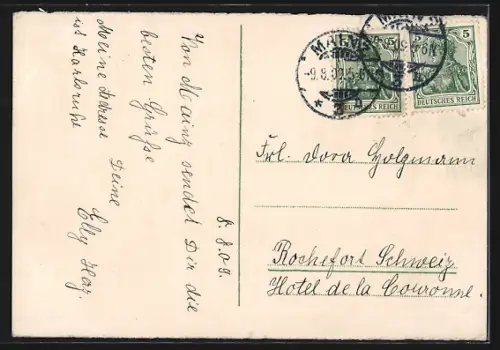 Von Mainz sendet Dir die
besten Grüsse
Deine
Elly
Meine Adresse
ist Karlsruhe
8. 8. 09.
MAINZ
-9.8.09.5-6
* 3
5
DEUTSCHES REICH
5
DEUTSCHES REICH
Frl. Dora Holzmann
Rochefort Schweiz
Hotel de la Couronne.